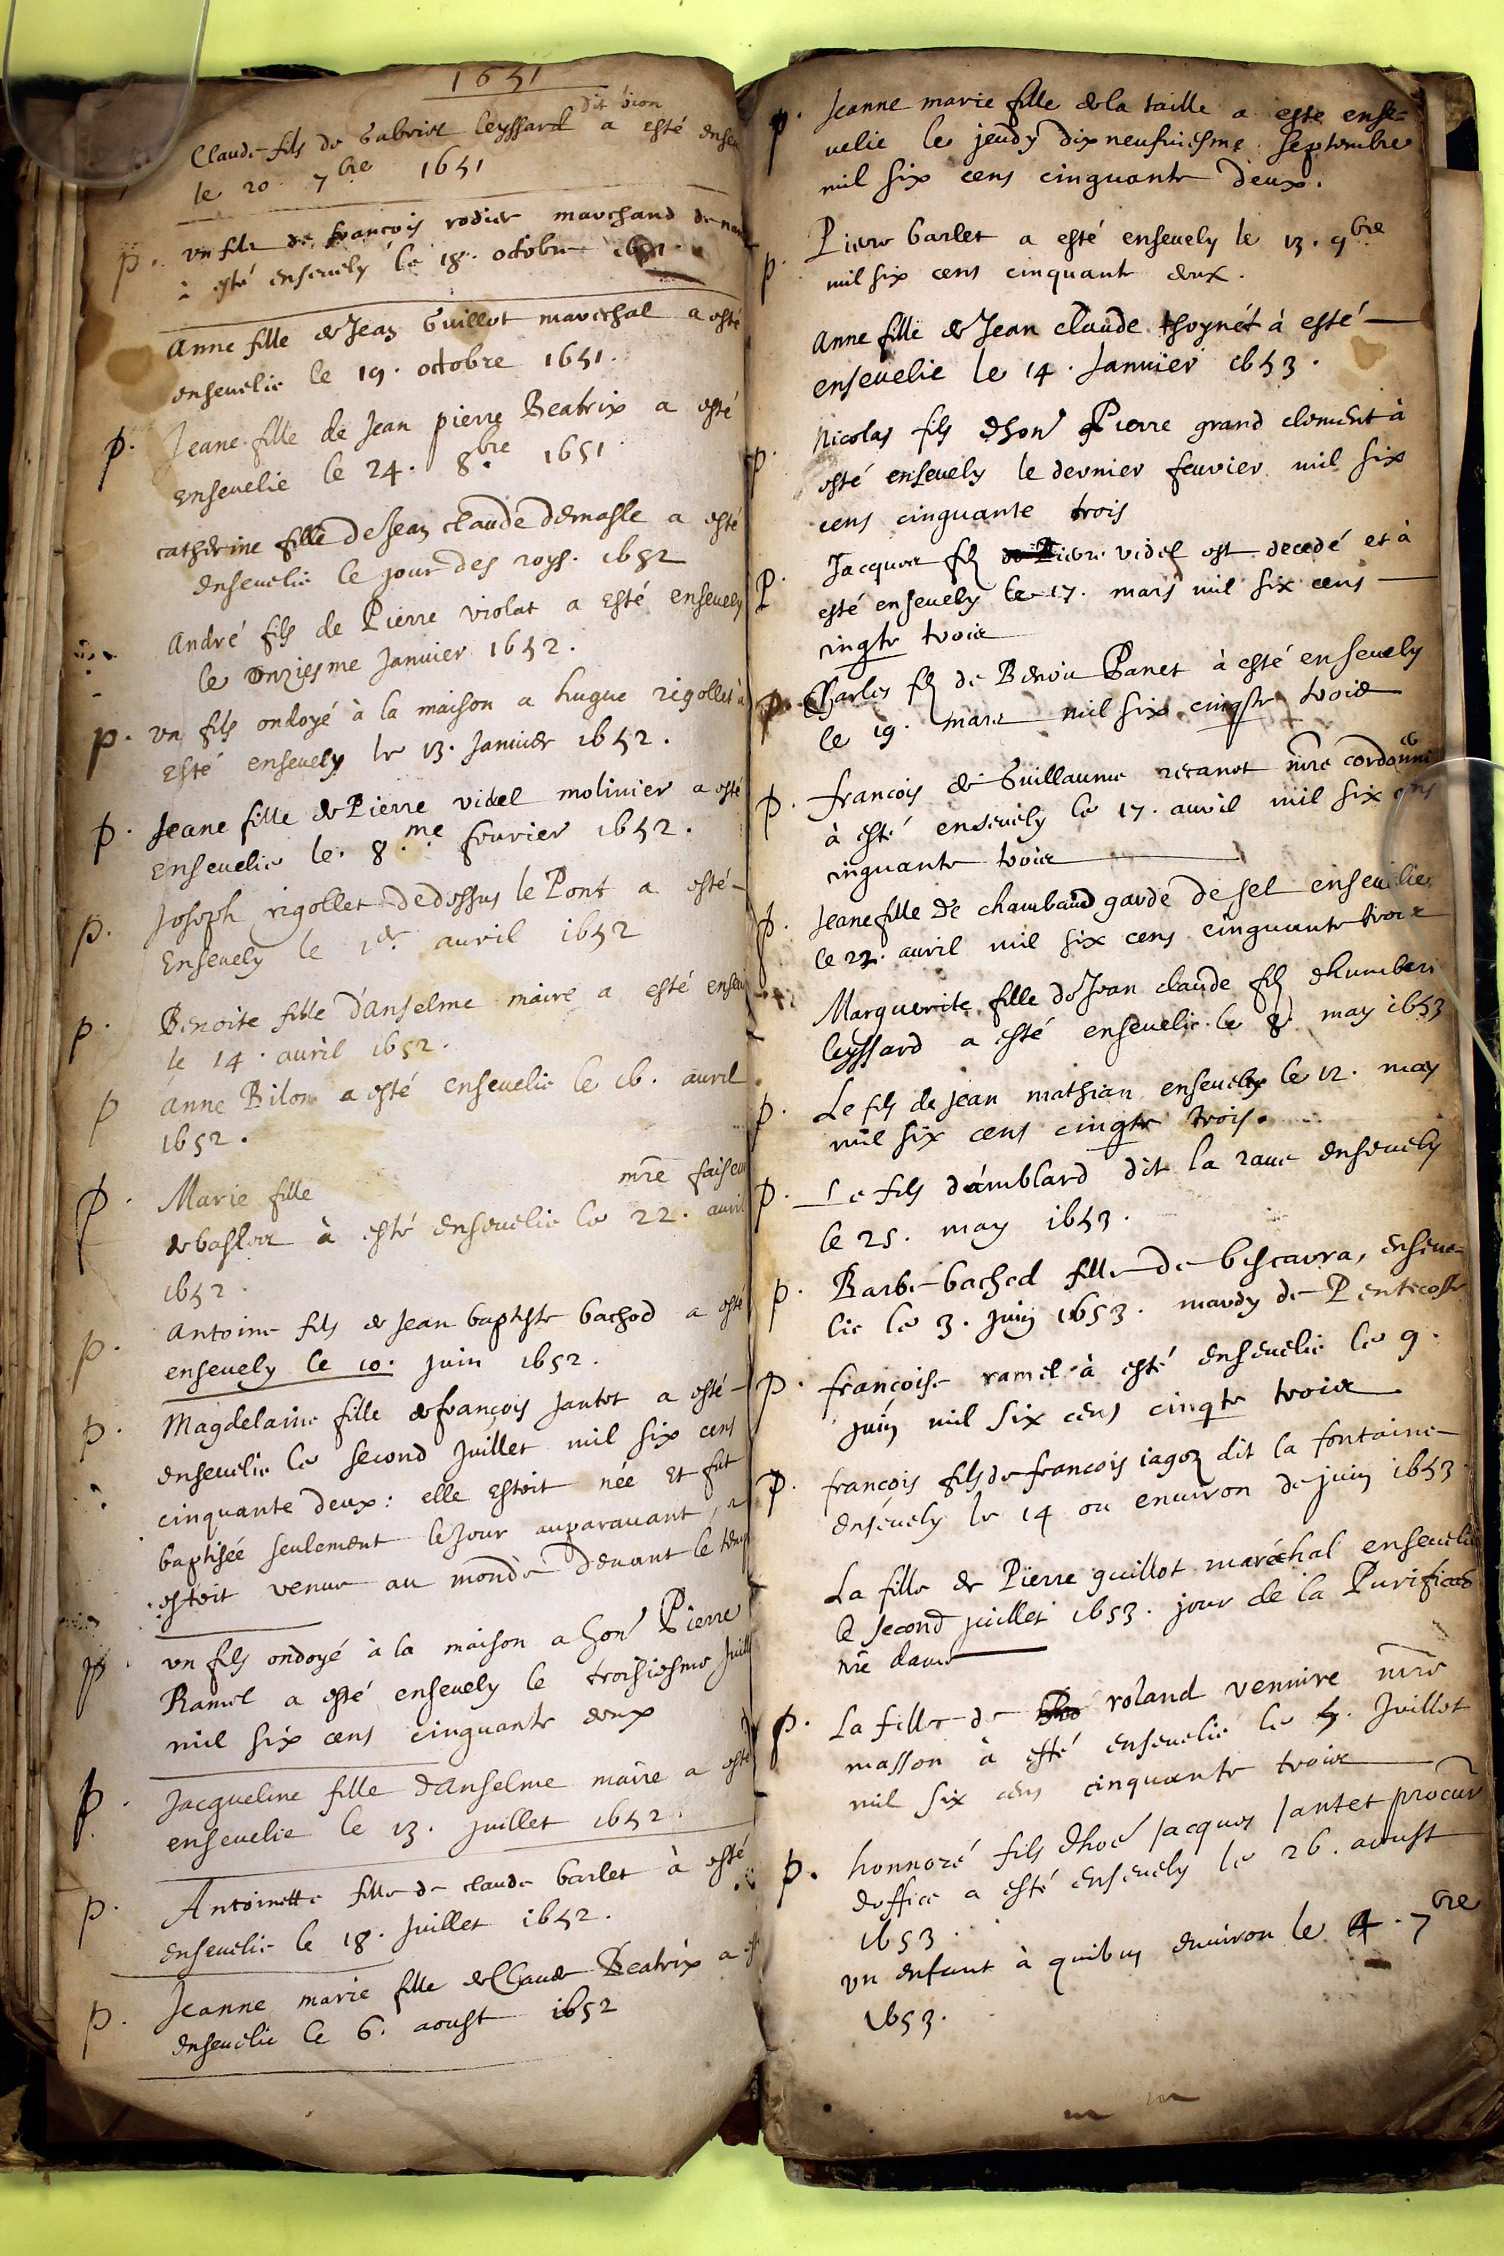 1651
Claude fils de Gabriel leyssard dit bion a esté ense
le 20 7bre 1651
p. un fils de françois rodier marchand de
à esté ensevely le 18. octobre 1651.
Anne fille de Jean Guillot mareschal a esté
ensevelie le 19. octobre 1651.
p. Jeane fille de Jean pierre Beatrix a esté
Ensevelie le 24. 8bre 1651
catherine fille de Jean claude demasle a esté
Ensevelie le jour des roys. 1652
André fils de Pierre violat a Esté ensevely
le onziesme Janvier 1652.
p. un fils ondoyé à la maison a hugue rigollet à
Esté ensevely le 13. Janvier 1652.
p. Jeane fille de Pierre vidal molinier a esté
Ensevelie le. 8.me fevrier 1652.
p. Joseph rigollet de dessus le Pont a esté-
Ensevely le 1er avril 1652
p. Benoite fille d'anselme maire a esté ensev
le 14. avril 1652.
p Anne Bilon a esté ensevelie le 16. avril
1652.
p. Marie fille mre faiseu
de bas à esté ensevelie le 22. avril
1652.
p. Antoine fils de Jean baptiste bachod a esté
ensevely le 10. juin 1652.
p. Magdelaine fille de françois Jantet a esté-
ensevelie le second Juillet mil six cens
cinquante deux: elle Estoit née Et fut
baptisée seulement le Jour auparavant,
estoit venue au monde devant le temp
p. un fils ondoyé à la maison a hon Pierre
Ramel a esté ensevely le troisiesme Juill
mil six cens cinquante deux
p. Jacqueline fille d'Anselme maire a esté
ensevelie le 13. juillet 1652.
p. Antoinette fille de claude barlet à esté
ensevelie le 18. Juillet 1652.
p. Jeanne marie fille de Claude Beatrix a es
ensevelie le 6. aoust 1652
p. Jeanne marie fille de la taille a este ense-
velie le jeudy dix neufviesme Septembre
mil six cens cinquante deux.
p. Pierre barlet a esté ensevely le 13. 9bre
mil six cens cinquante deux.
Anne fille de Jean claude thoynét à esté-
ensevelie le 14. Janvier 1653.
p. Nicolas fils d'hon Pierre grand clement à
esté ensevely le dernier fevrier mil six
cens cinquante trois
p. Jacques fils de Pierre vidal est decedé et à
esté ensevely le 17. mars mil six cens-
cinqte trois
p. Charles fils de Benoit Panet à esté ensevely
le 19. mars mil six cinqte trois
p. françois de Guillaume recanet mre cordonni
à esté ensevely le 17. avril mil six cens
cinquante trois
p. Jeane fille de chambaud garde de sel ensevelie
le 22. avril mil six cens cinquante trois
Marguerite fille de Jean claude fils dhumber
leyssard a esté ensevelie le 8 may 1653
p. Le fils de Jean mathian ensevely le 12. may
mil six cens cinqte trois.
p. Le fils d'amblard dit la rave ensevely
le 25. may 1653.
p. Barbe bachod fille de bescavra, enseve-
lie le 3. juin 1653. mardy de Pentecoste
p. françoise ramel à esté ensevelie le 9.
juin mil six cens cinqte trois
p. françois fils de francois iagoz dit la fontaine-
ensevely le 14 ou environ de juin 1653.
La fille de Pierre guillot maréchal ensevelie
le second juillet 1653. jour de la Purificao
nre dame
p. La fille de roland vennire mre
masson à esté ensevelie le 5. Juillet
mil six cens cinquante trois
p. honnoré fils dhoe Jacques Jantet procur
doffice a esté ensevely le 26. aoust
1653.
un enfant à quibus environ le 4. 7bre
1653.